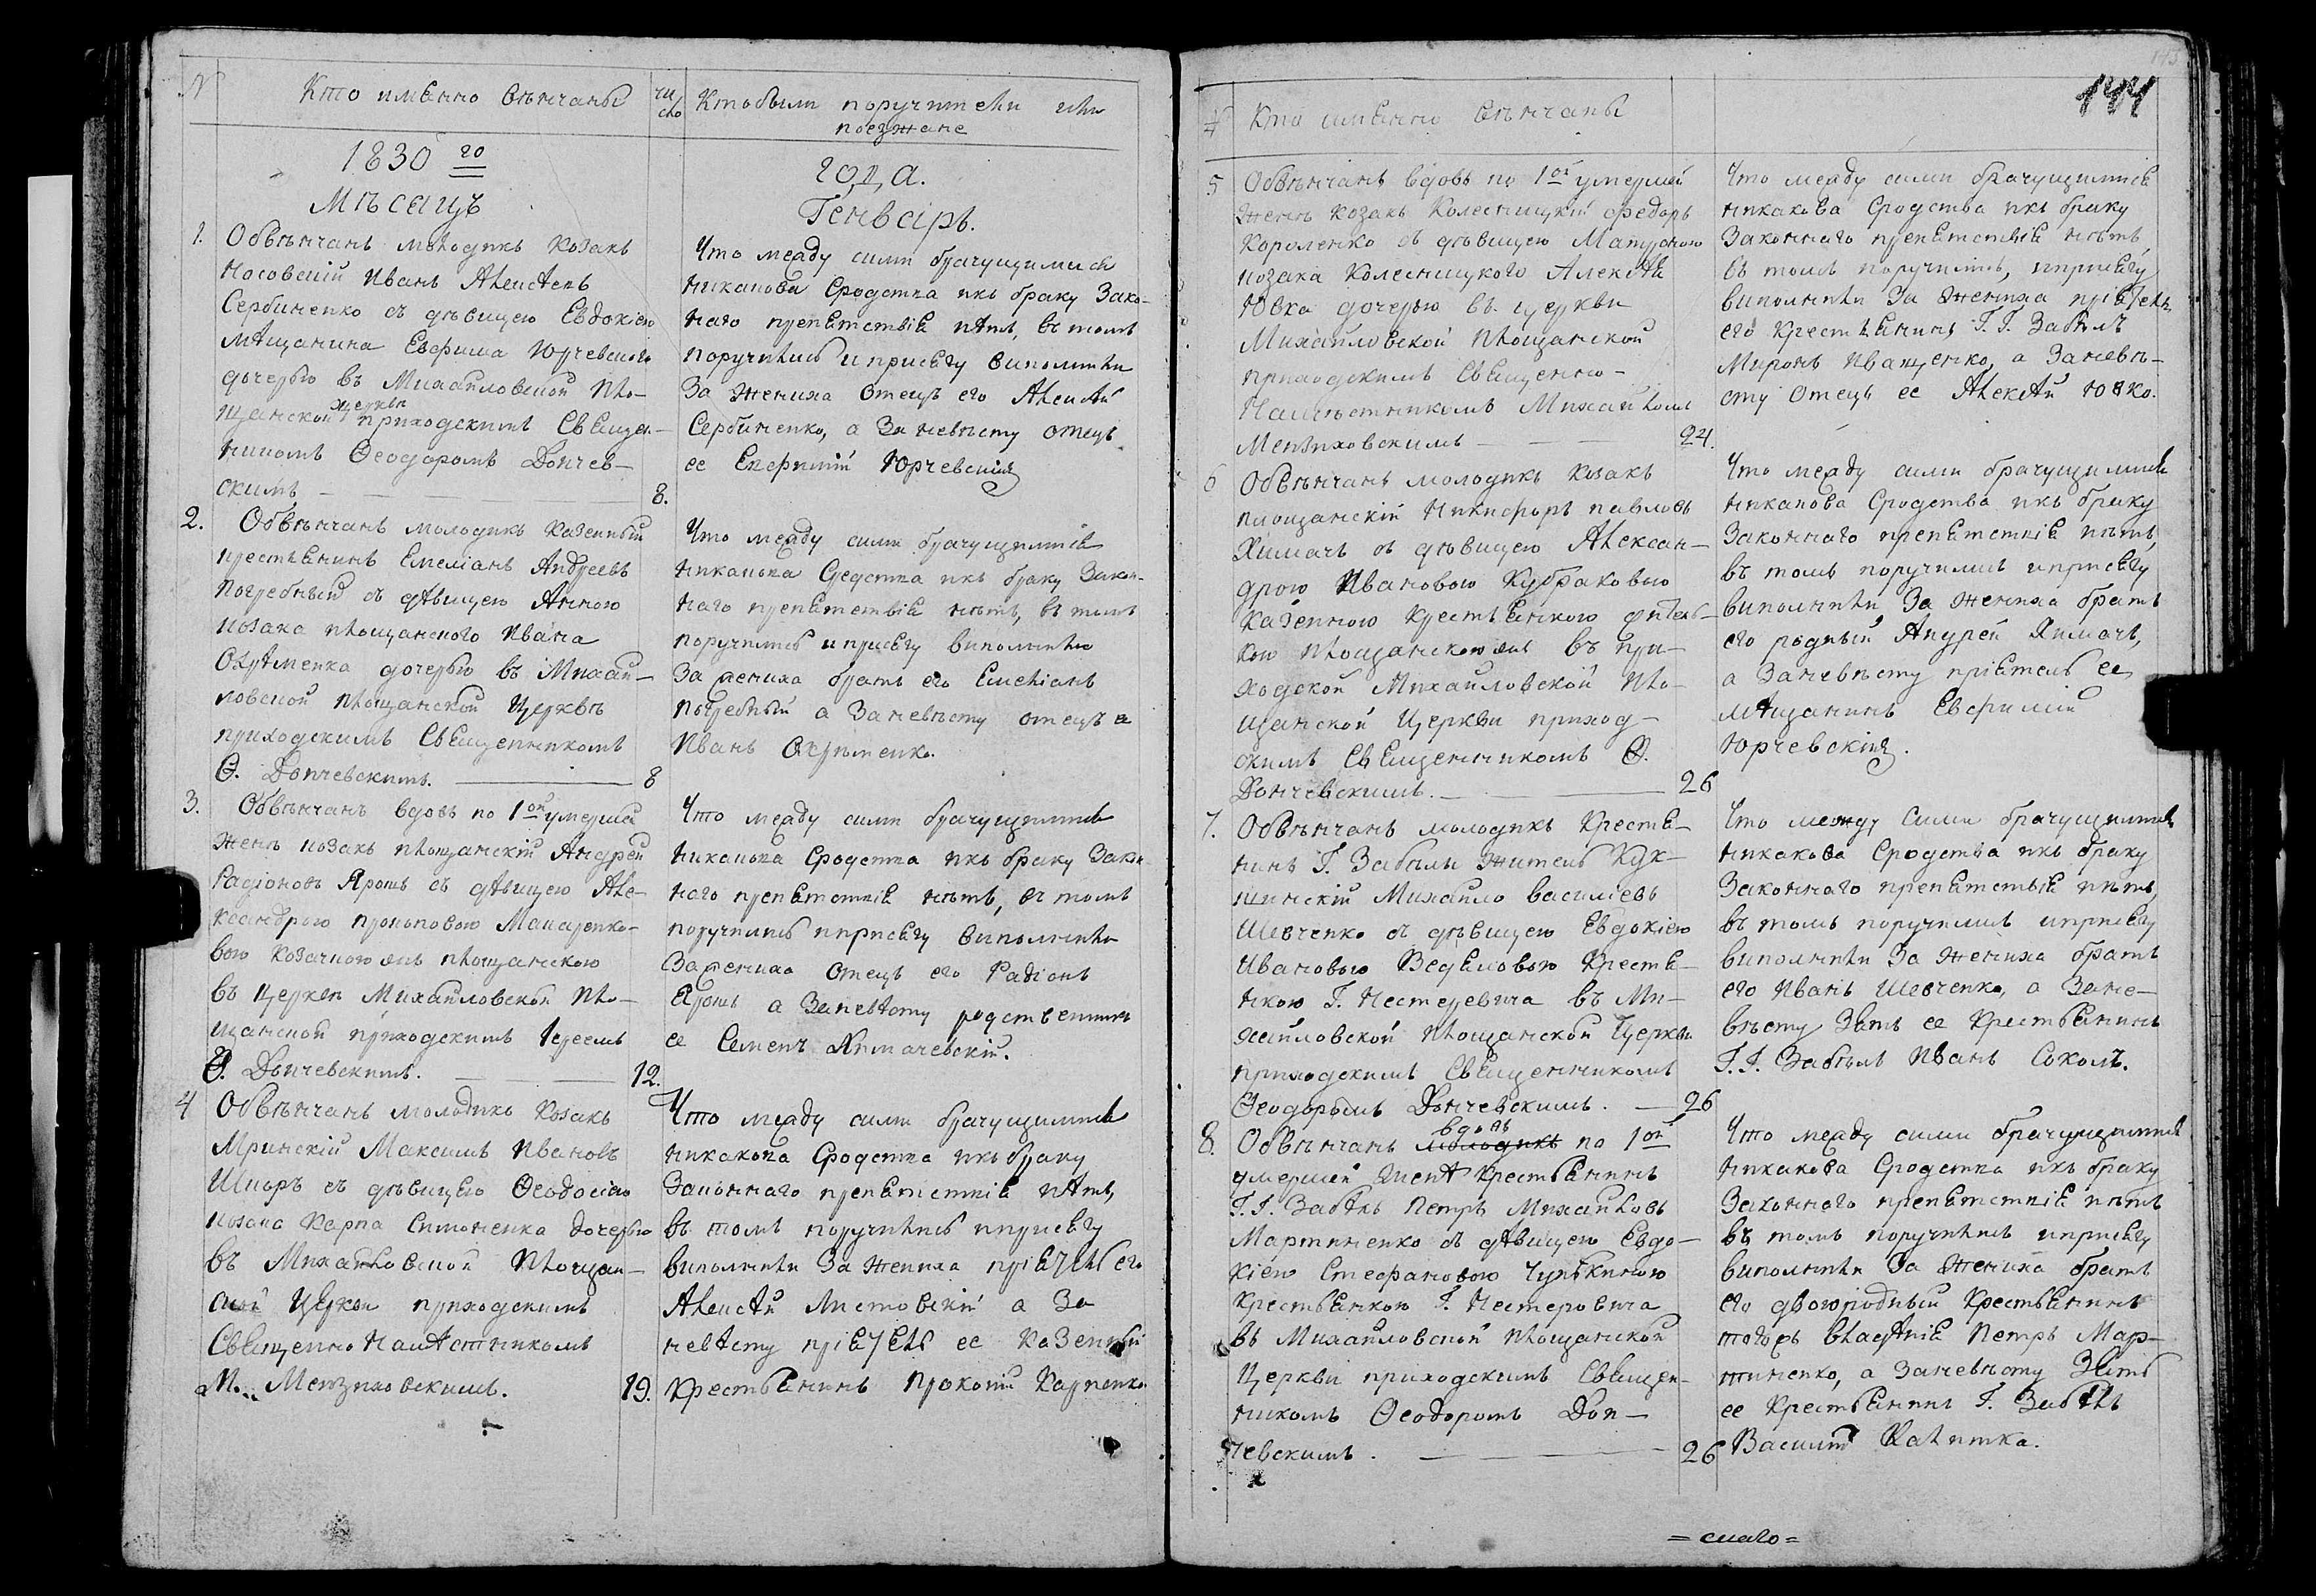 № Кто именно вѣнчаны
чи
сло
Кто были поручители или
поезжане
1830 го
Мѣсяцъ
года.
Генваръ.
1. Обвѣнчанъ молодикъ козакъ
Носовскій Иванъ Алексѣевъ
Сербиненко съ дѣвицею Евдокіею
мѣщанина Евфима Юрчевского
дочерью въ Михайловской Пло-
щанской церкви приходскимъ Священ-
никомъ Ѳеодоромъ Дончев-
скимъ 8.
Что между сими брачущимися
никакова сродства икъ браку зако-
наго препятствія нѣтъ, въ томъ
поручились и присягу виполнили
за жениха отецъ его Алексѣй
Сербиненко, а за невѣсту отецъ
ее Евфимій Юрчевскій
2. Обвѣнчанъ молодикъ казенный
крестянинъ Емеліанъ Андреевъ
Погребный съ дѣвицею Анною
козака площанского Ивана
Охрѣменка дочерью въ Михай-
ловской площанской Церквѣ
приходскимъ Священникомъ
Ѳ. Дончевскимъ. 8
Что между сими брачущимися
никакова сродства икъ браку закон-
наго препятствія нѣтъ, въ томъ
поручились и присягу виполнили
за жениха братъ его Емеліанъ
Погребный а за невѣсту отецъ ея
Иванъ Охрѣменко.
3. Обвѣнчанъ вдовъ по 1ой умершей
женѣ козакъ площанскій Андрей
Радіоновъ Ярошъ съ дѣвицею Але-
ксандрою Прокоповою Макаренко-
вою козачкою площанскою
въ церкви Михайловской пло-
щанской приходскимъ Іереемъ
Ѳ. Дончевскимъ. 12.
Что между сими брачущимися
никакова сродства икъ браку закон-
наго препятствія нѣтъ, въ томъ
поручились и присягу виполнили
за жениха отецъ его Радіонъ
Ярошъ а за невѣсту родственникъ
ее Семенъ Химачевскій.
4 Обвѣнчанъ молодикъ козакъ
Мринскій Максимъ Ивановъ
Шкоръ съ дѣвицею Ѳеодосіею
козака Карпа Симоненка дочерью
въ Михайловской Площан-
ской Церкви приходскимъ
СвященноНамѣстникомъ
М. Менжиховскимъ. 19.
Что между сими брачущимися
никакова сродства икъ браку
законнаго препятствія нѣтъ,
въ томъ поручились и присягу
виполнили за жениха пріятель его
Алексѣй Листовскій а за
невѣсту пріятель ее казенный
крестьянинъ Прокопій Карпенко
144
№ Кто именно вѣнчаны
5 Обвѣнчанъ вдовъ по 1ой умершей
женѣ козакъ Колесницкій Федоръ
Короленко съ дѣвицею Матроною
козака Колесницкого Алексѣя
Ювка дочерью въ церкви
Михайловской площанской
приходскимъ Священно-
Намѣстникомъ Михайломъ
Менжиховскимъ 24.
Что между сими брачущимися
никакова сродства икъ браку
законнаго препятствія нѣтъ,
въ томъ поручились, и присягу
виполнили за жениха пріятель
его крестьянинъ Г. Г. Забѣлъ
Миронъ Иващенко, а за невѣ-
сту отецъ ее Алексѣй Ювко.
6 Обвѣнчанъ молодикъ козакъ
площанскій Никифоръ Павловъ
Химачъ съ дѣвицею Алексан-
дрою Ивановою Кубраковою
казенною крестьянкою жител-
кою площанскою въ при-
ходской Михайловской пло-
щанской Церкви приход-
скимъ Священникомъ Ѳ.
Дончевскимъ. 26
Что между сими брачущимися
никакова сродства икъ браку
законнаго препятствія нѣтъ,
въ томъ поручились и присягу
виполнили, за жениха братъ
его родный Андрей Химачъ,
а за невѣсту пріятель ее
мѣщанинъ Евфимій
Юрчевскій.
7. Обвѣнчанъ молодикъ крестья-
нинъ Г. Забѣлы житель Кук-
шинскій Михайло Василіевъ
Шевченко съ дѣвицею Евдокіею
Ивановою Ведѣловою крестья-
нкою Г. Нестеревича въ Ми-
хайловской площанской Церкви
приходскимъ Священникомъ
Ѳеодоромъ Дончевскимъ. 26
Что между сими брачущимися
никакова сродства икъ браку
законнаго препятствія нѣтъ,
въ томъ поручились и присягу
виполнили за жениха братъ
его Иванъ Шевченко, а за не-
вѣсту зять ее крестьянинъ
Г. Г. Забѣлъ Иванъ Соколъ.
вдовъ
8. Обвѣнчанъ молодикъ по 1ой
умершей женѣ крестьянинъ
Г. Г. Забѣлъ Петръ Михайловъ
Мартиненко съ дѣвицею Евдо-
кіею Стефановою Чулкиною
крестьянкою Г. Нестеровича
въ Михайловской площанской
Церкви приходскимъ Священ-
никомъ Ѳеодоромъ Дон-
чевскимъ. 26
Что между сими брачущимися
никакова сродства икъ браку
законнаго препятствія нѣтъ
въ томъ поручились и присягу
виполнили за жениха братъ
его двоюродный крестьянинъ
тогожъ владѣнія Петръ Мар-
тиненко, а за невѣсту зять
ее крестьянинъ Г. Забѣлъ
Василій Калитка.